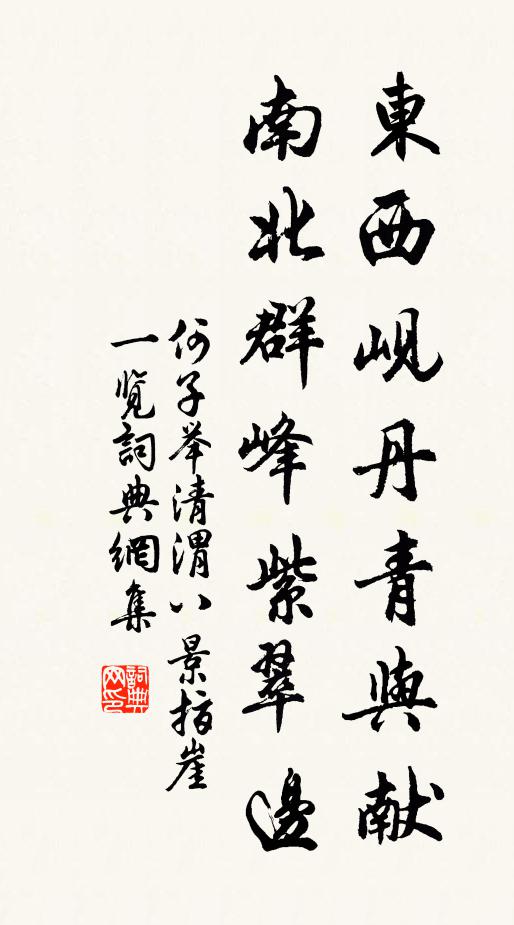 東西峴丹青與献
南北群峰紫翠邊
何子举清渭八景指崖
一览詞典網集
詞典网印